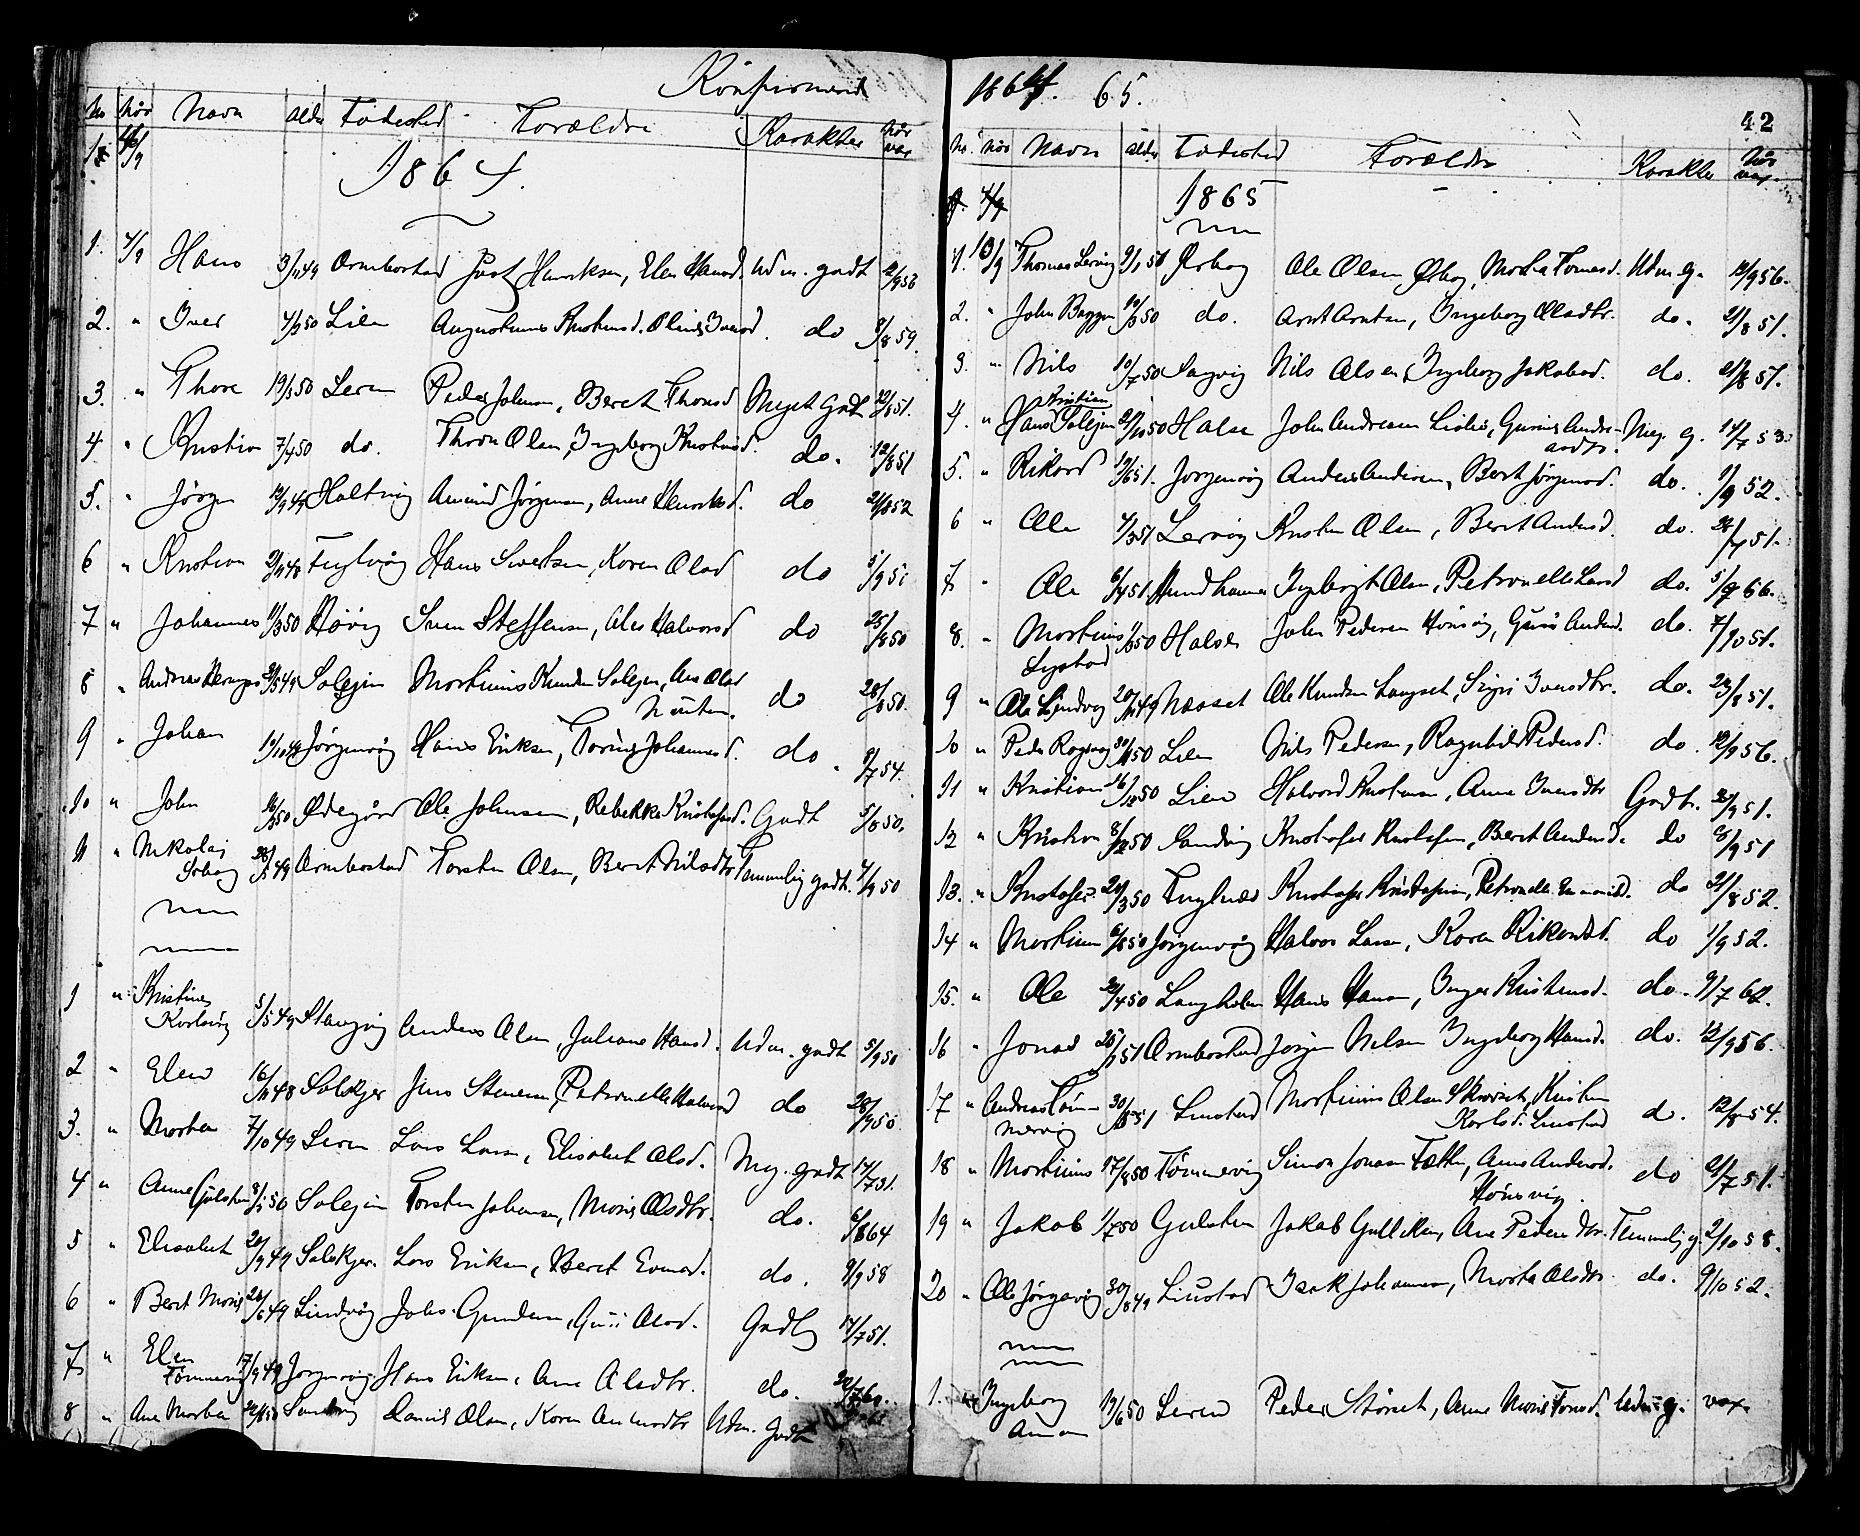 Konfirmerede
No når Navn alder Födested Forældre Karakter når vax
1864.
1. 4/9 Hans 3/11 49 Ormbostad Just Henriksen, Elen Hansd. Udm. godt 12/9 53
2. " Iver 4/9 50 Lien Augustinus Kristensd. Oline Iversd. do 3/8 59.
3. " Thore 19/3 50 Leren Peder Johnsen, Beret Thoresd Meget Godt 12/8 51.
4 " Kristian 7/4 50 do. Thore Olsen, Ingeborg Kristensd. do. 12/8 51
5. " Jörgen 12/9 49 Haltvig Amund Jörgensen, Anne Henriksd. do 21/8 52
6 " Kristian 2/11 48 Fuglvåg Hans Sivertsen, Karen Olsd do 5/9 51
7 " Johannes 11/3 50 Rövig Sven Steffensen, Ales Halvorsd do 25/8 50
8 " Andreas 21/5 49 Solegin Mortinus Knudsen Solegin, Ane Olsd do 28/8 50.
9 " Johan 19/10 49 Jörgenvåg Hans Eriksen, Johannesd. do. 9/7 54.
10 " John 16/3 50 Ödegård Ole Johnsen, Rebekka Kristofersd. Godt 5/8 50.
11 " Nikolai 28/5 49 Ormbostad Torsten Olsen, Beret Nilsdtr Temmelig godt. 4/9 50
1 " Kristine 5/5 49 Stangvig Anders Olsen, Juliane Hansd. Udm. godt 5/9 50
2 " Elen 16/11 48 Solskjer Jens Stenersen, Petronelle Halvorsd do 28/9 50
3. " Marta 7/10 49 Leren Lars Larsen, Elisabet Olsd. Mg. godt 17/7 51.
4 " Anne Gulsten 8/1 50 Solegin Torsten Johansen, Marit Olsdtr. do. 6/8 64
5 " Elisabet 20/9 49 Solskjer. Lars Eriksen, Beret Evensd. do. 9/9 58
6 " Beret Marit 28/6 49 Lindvåg Johs. Gundersen, Guri Olsd. Godt 17/7 51.
7 " Elen Tömmervåg 17/9 49 Jörgenvåg Hans Eriksen, Ane Olsdtr. do. 20/7 60.
8 " Ane Marta 22/8 50 Sandvig Daniel Olsen, Karen Amundsdtr Udm. Godt
1864. 65.
42
No. når Navn alder Födested Forældre Karakter når vax.
1865
1. 10/9 Thomas Lervig 9/1 51 Örbog Ole Olsen Örbog, Marta Tomasd. Udm g. 12/9 56.
2. " John Baggen 10/3 50 do. Arnt Arntsen, Ingeborg Olsdtr. do. 21/8 51.
3. " Nils 10/7 50 Sagvig Nils Olsen, Ingeborg Jakobsd. do. 21/8 51.
4. " Hans Kristian Solegin 21/10 50 Halse John Andreasen Lislie, Guruni Andreasdtr. Meg. g. 14/7 53
5. " Rikard 19/6 51. Jörgenvåg Anders Andersen, Beret Jörgensd. do. 1/9 52.
6 " Ole 4/3 51 Lervåg Kristen Olsen, Beret Andersd. do. 24/7 51.
7 " Ole 6/4 51. Hundhamer Ingebrigt Olsen, Petronelle Larsd do. 5/9 66.
8. " Martinus Lystad 1/3 50 Halse John Pedersen Hönsvig, Guri Andersd. do. 7/10 51.
9 " Ole Lindvåg 20/11 49 Næsset Ole Knudsen Langset, Sigri Iversdtr. do. 24/8 51.
10 " Peder Rognvig 30/11 50 Lien Nils Pedersen, Ragnhild Pedersd. do. 12/9 56.
11 " Kristian 16/10 50 Lien Halvard Kristensen, Anne Iversdtr Godt. 30/9 51.
12 " Kristian 8/12 50 Sandvig Kristofer Kristofersen, Beret Andersd. do 8/9 51
13. " Kristofer 20/3 50 Fuglnæs Kristofer Kristofersen, Petronelle do 24/8 52.
14 " Martinus 6/8 50 Jörgenvåg Halvor Larsen, Karen Rikardsd. do 1/9 52.
15. " Ole 30/4 50 Langholen Hans Hansen, Inger Kristensd. do. 9/7 62.
16 " Jonas 25/1 51 Ormbostad Jörgen Nilsen Ingeborg Hansd. do. 12/9 56.
17 " Andreas Tömmervig 30/5 51 Linstad Mortinus Olsen Skorset, Kristen Karlsd. Linstad do. 12/8 54.
18 " Mortinus 17/8 50 Tömmervig Simon Jonasen Fætten, Anne Andersd. Hönsvig. do 21/7 51.
19 " Jakob 1/7 50 Gulsten Jakob Gulliksen, Ane Pedersdtr. Temmelig g. 2/10 58.
20 " Ole Jörgenvåg 30/8 49 Linstad Isak Johannesen, Marta Olsdtr. do. 9/10 52.
1. " Ingeborg Anna 19/6 50 Leren Peder Störset, Anne Marie Tomasd. Udm. g. vax.